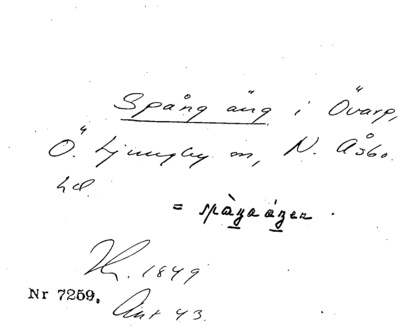 Spång äng i Övarp,
Ö. Ljungby sn, N. Åsbo
hd.
= spàŋaáŋen
1849
Nr 7259. Ant 43.